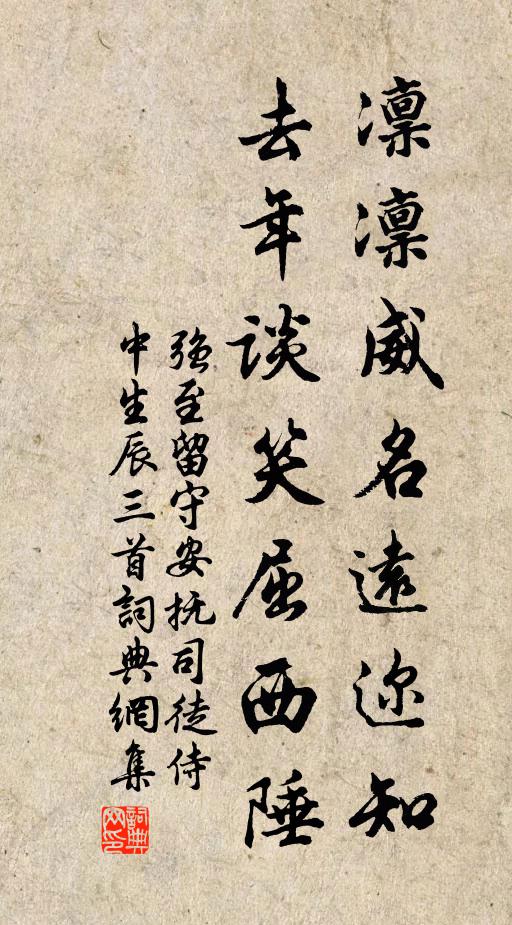 凛凛威名遠迩知
去年談笑屈西陲
強至留守安抚司徒侍
中生辰三首詞典網集
詞典
网印